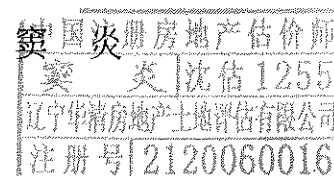 中国注册房地产估价师
窦 炎
窦 炎 沈估1255
辽宁华清房地产土地评估有限公司
注册号 2120060016